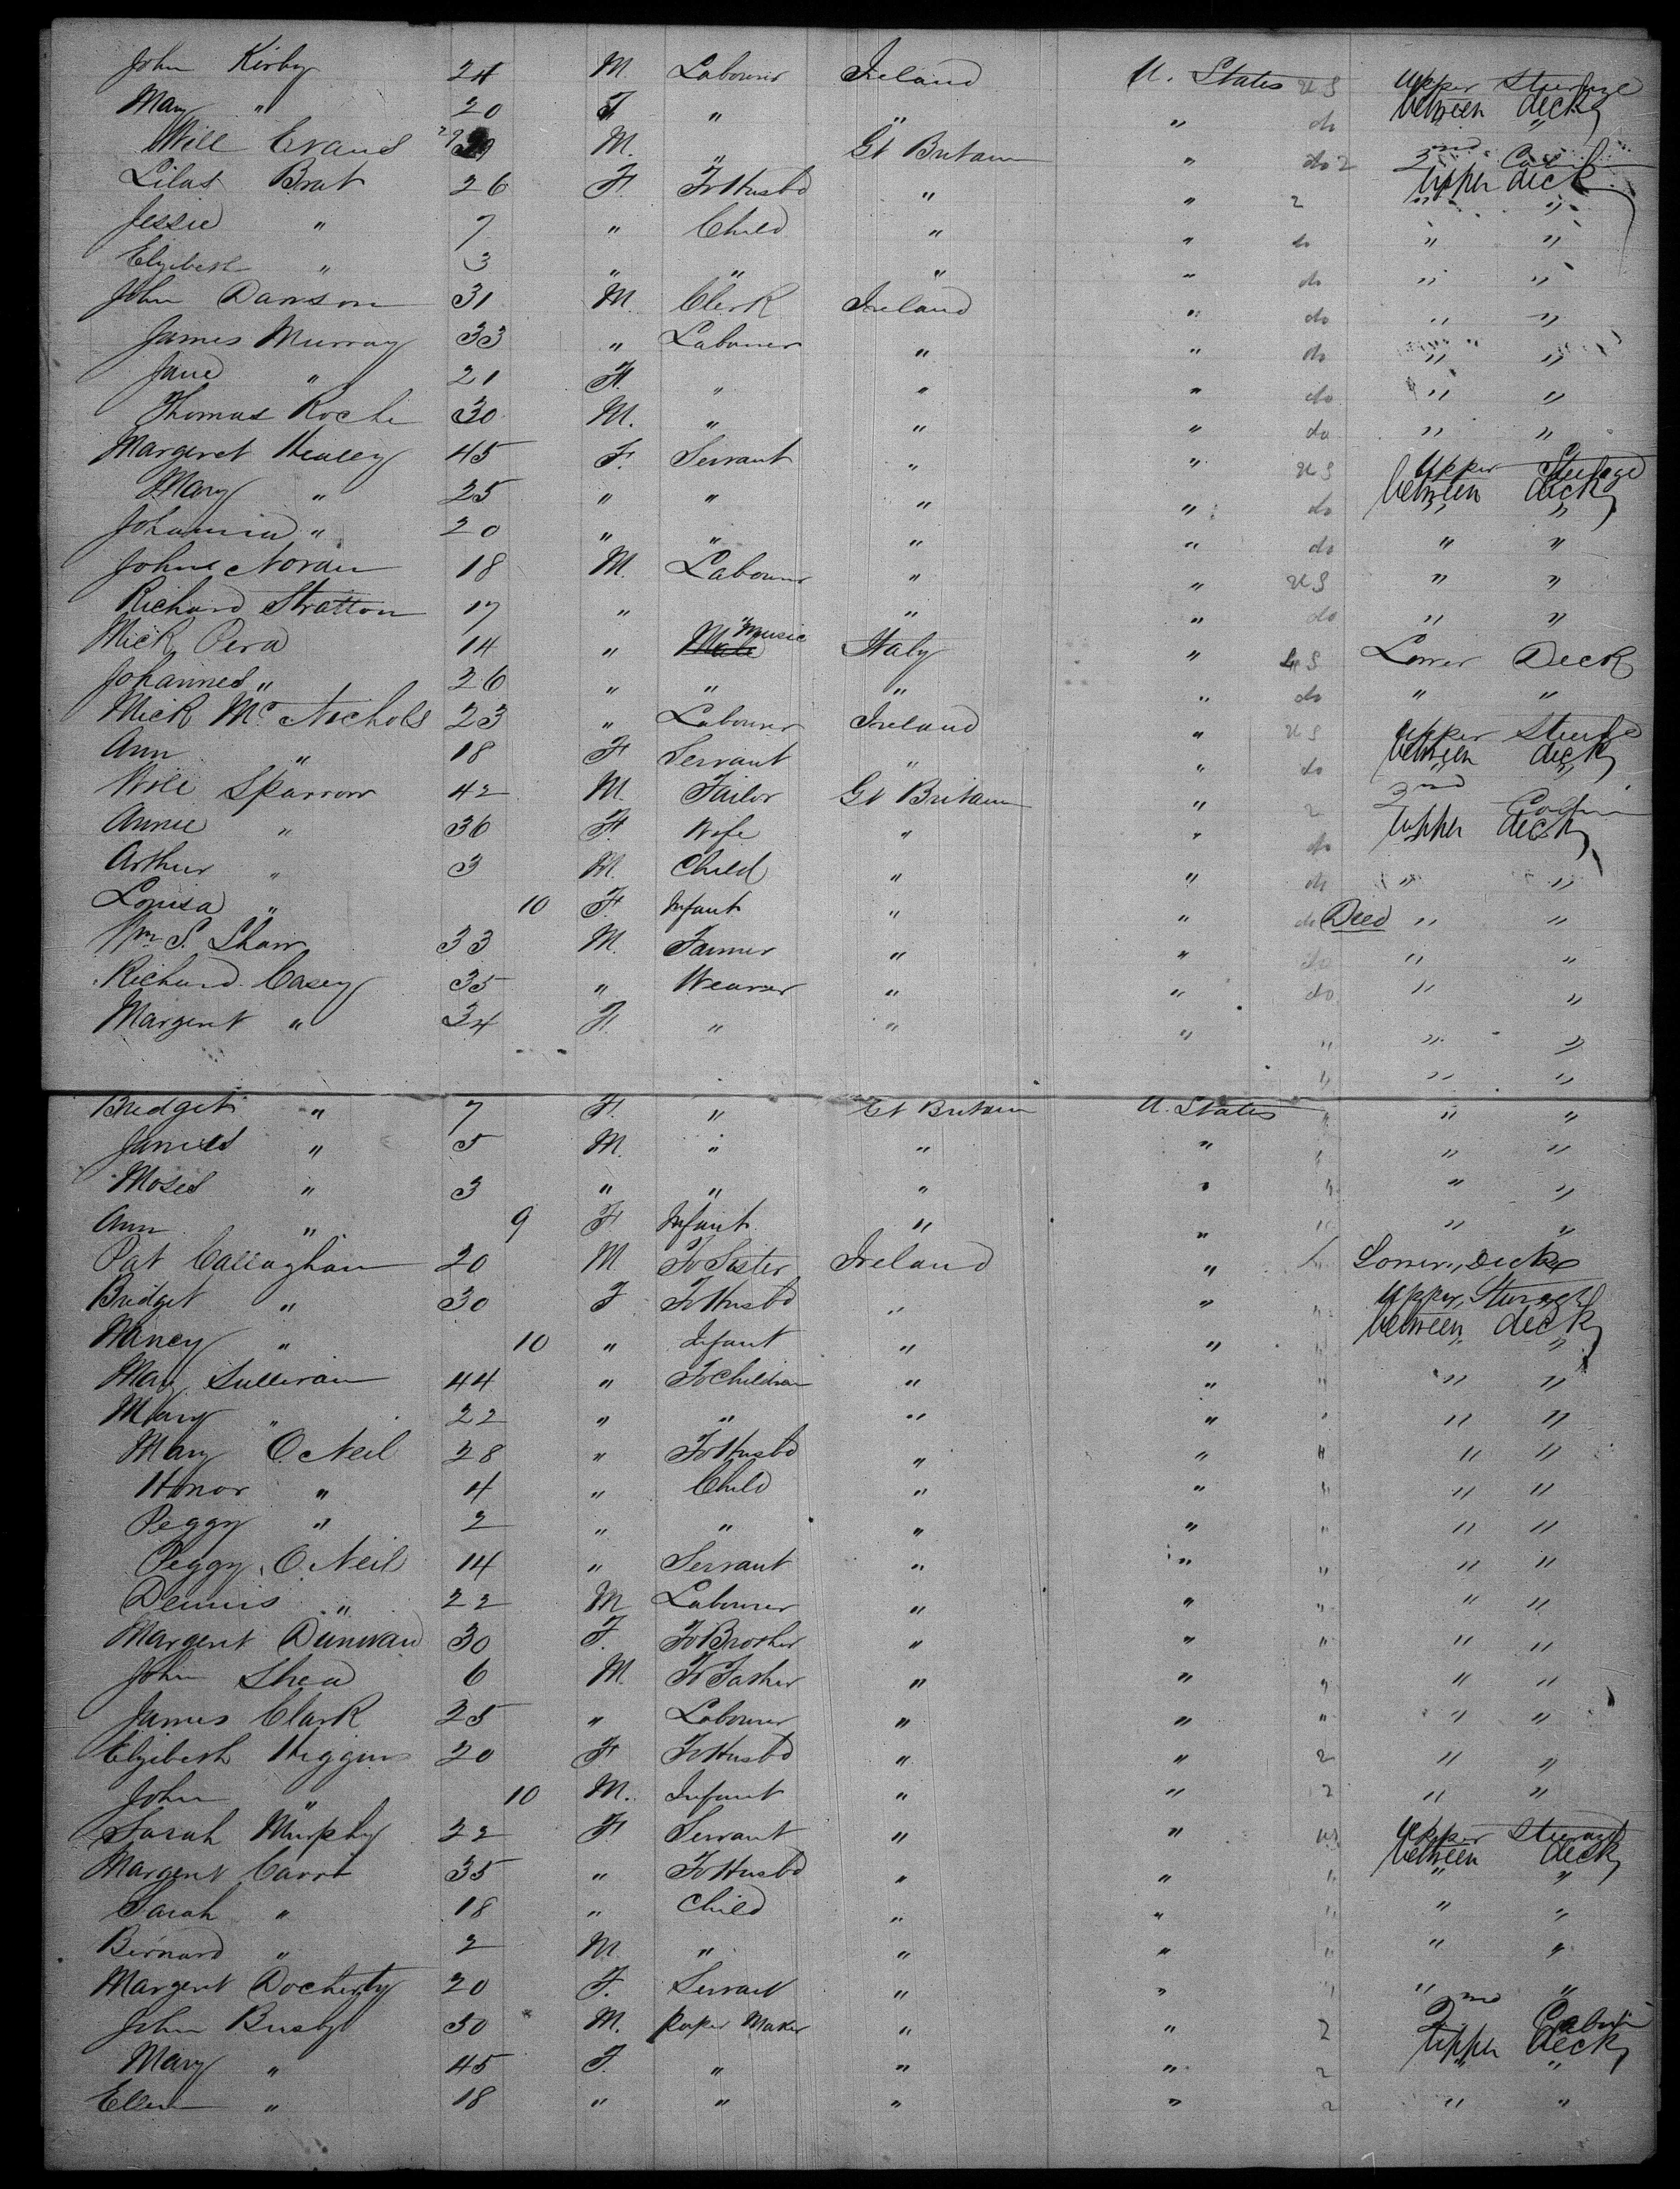 John Kirby 24 M. Labourer Ireland U. States U S Upper Steerage
Mary " 20 F " " " do between decks
Will Evans 29 M. " Gt Britain " do 2 2nd Cabin
Lilas Brat 26 F. To Husbd " " 2 upper deck
Jessie " 7 " Child " " do " "
Elizibeth " 3 " " " " do " "
John Dawson 31 M. Clerk Ireland " do " "
James Murray 33 " Labourer " " do " "
Jane " 21 F. " " " do " "
Thomas Roche 30 M. " " " do " "
Margeret Healey 45 F. Servant " " U S Upper Steerage
Mary " 25 " " " " do between decks
Johanna " 20 " " " " do " "
John Noran 18 M. Labourer " " U S " "
Richard Stratton 17 " " " " do " "
Mick Pera 14 " Music Italy " L S Lower Deck
Johannes " 26 " " " " do " "
Mick Mc Nichols 23 " Labourer Ireland " U S Upper Steerage
Ann " 18 F Servant " " do between decks
Will Sparrow 42 M. Tailor Gt Britain " 2 2nd Cabin
Annie " 36 F. Wife " " do upper deck
Arthur " 3 M. Child " " do " "
Louisa " 10 F. Infant " " do Died " "
Wm S. Shaw 33 M. Farmer " " do " "
Richard Casey 35 " Weaver " " do " "
Margent " 34 F. " " " " " "
" " "
Bridget " 7 F. " Gt Britain U. States " " "
James " 5 M. " " " " " "
Moses " 3 " " " " " " "
Ann " 9 F Infant " " " " "
Pat Callaghan 20 M To Sister Ireland " L Lower Deck
Bridget " 30 F To Husbd " " " Upper Steerage
Nancy " 10 " Infant " " " between decks
Mary Sullivan 44 " To Children " " " " "
Mary " 22 " " " " " " "
Mary O.Neil 28 " To Husbd " " " " "
Honor " 4 " Child " " " " "
Peggy " 2 " " " " " " "
Peggy O.Neil 14 " Servant " " " " "
Dennis " 22 M Labourer " " " " "
Margent Dunivan 30 F. To Brother " " " " "
John Shea 6 M. To Father " " " " "
James Clark 25 " Labourer " " " " "
Elzibeth Higgins 20 F To Husbd " " 2 " "
John " 10 M. Infant " " 2 " "
Sarah Murphy 22 F Servant " " US Upper Steerage
Margent Carrt 35 " To Husbd " " " between decks
Sarah " 18 " Child " " " " "
Bernard " 2 M. " " " " " "
Margent Docherty 20 F. Servant " " " " "
John Busby 50 M. paper Maker " " 2 2nd Cabin
Mary " 45 F. " " " 2 upper deck
Ellen " 18 " " " " 2 " "